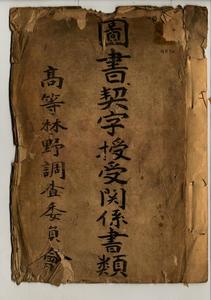 圖書契字授受関係書類
高等林野調査委員會